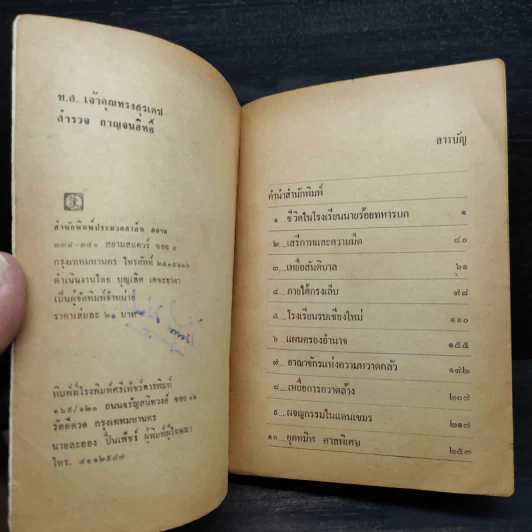 ท.ส. เจ้าคุณทรงสุรเดช
สำรวจ กาญจนสิทธิ์
สำนักพิมพ์ประมวลสาส์น สยาม
๓๓๘-๓๔๑ สยามสแควร์ ซอย ๕
กรุงเทพมหานคร โทรศัพธ์
ดำเนินงานโดย บุญเลิศ
เป็นผู้จัดพิมพ์จำหน่าย
ราคาเล่มละ ๒๐ บาท
พิมพ์ที่โรงพิมพ์ศรีเพ็ชร์การพิมพ์
๑๖๙/๑๒๐ ถนนจรัญสนิทวงศ์ ซอย ๑๖
วัดดีดวด กรุงเทพมหานคร
นายละออง ปิ่นเพ็ชร์ ผู้พิมพ์ผู้โฆษณา
โทร. ๔๑๑๒๕๔๗
สารบัญ
คำนำสำนักพิมพ์
๑ ชีวิตในโรงเรียนนายร้อยทหารบก ๑
๒...เสรีภาพและความมืด ๔๐
๓...เหยื่อสันติบาล ๖๑
๔...ภายใต้กรงเล็บ ๗๘
๕...โรงเรียนรบเชียงใหม่ ๑๑๐
๖...แผนครองอำนาจ ๑๕๕
๗...อาณาจักรแห่งความหวาดกลัว ๑๗๒
๘...เหยื่อการกวาดล้าง ๒๐๗
๙...ผจญกรรมในแดนเขมร ๒๑๗
๑๐...ยุคทมิฬ ศาลพิเศษ ๒๕๓